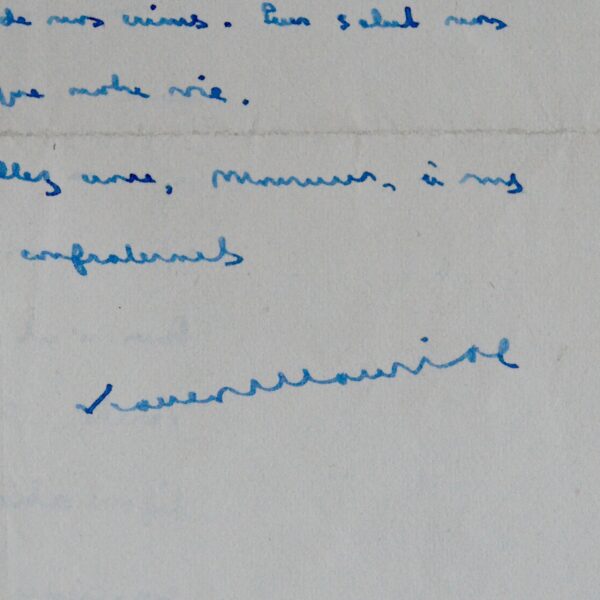 de nos crimes. Leur salut nous
que notre vie.
llez croire, Monsieur, à mes
confraternels
François Mauriac